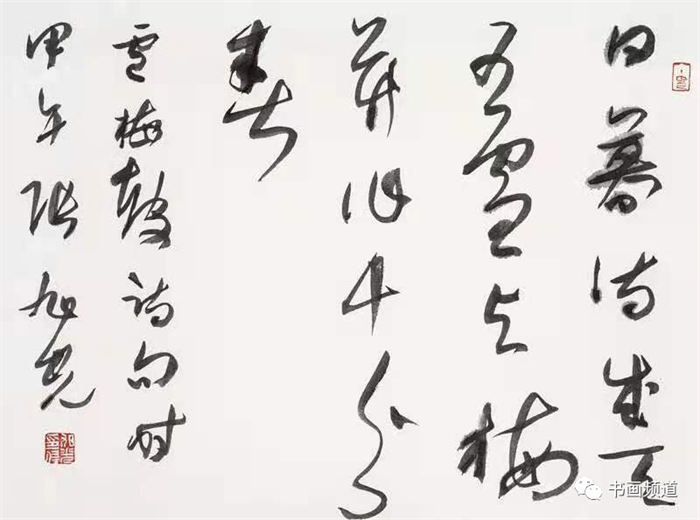 日暮诗成天
又雪与梅
并作十分
春
卢梅坡诗句时
甲午张旭光
书画频道